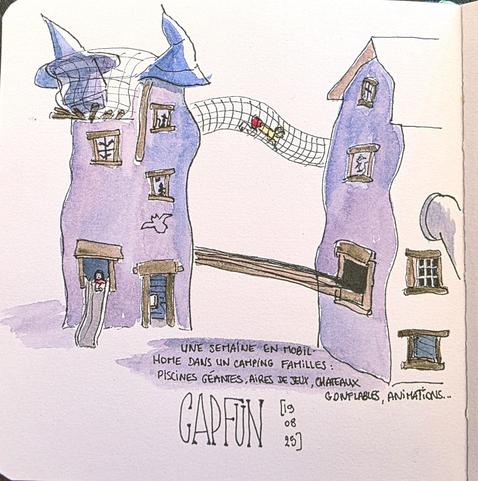 UNE SEMAINE EN MOBIL-
HOME DANS UN CAMPING FAMILLES :
PISCINES GÉANTES, AIRES DE JEUX, CHATEAUX
GONFLABLES, ANIMATIONS...
CAPFUN
[19
08
25]